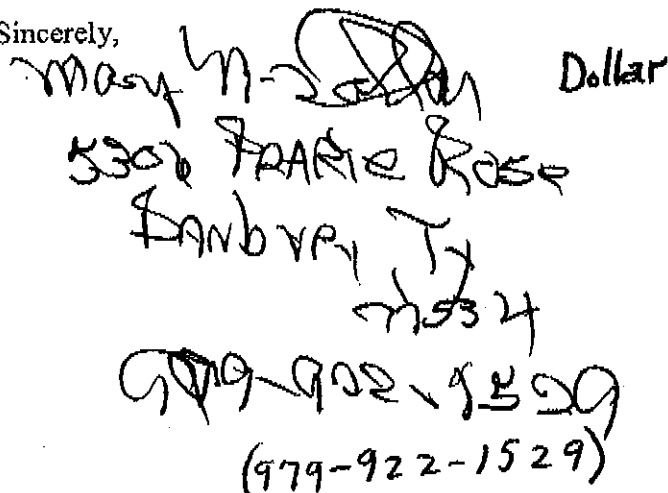 Sincerely,
Mary Dollar
5306 PRARIE Rose
DANbURY, Tx
77534
979-922-1529
(979-922-1529)